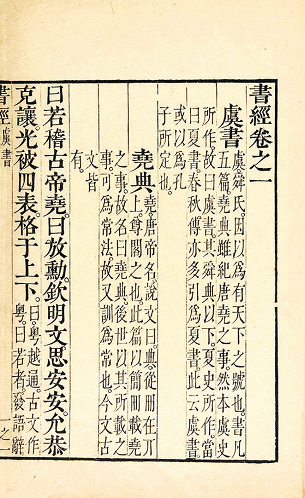 書經卷之一
虞書 虞舜氏因以為有天下之號也書凡
五篇堯典雖紀唐堯之事然本虞史
所作故曰虞書其舜典以下夏史所作當
曰夏書春秋傳亦多引為夏書此云虞書
或以為孔
子所定也
堯典 堯唐帝名說文曰典從冊在丌
上尊閣之也此篇以簡冊載堯
之事故名曰堯典後世以其所載之
事可為常法故又訓為常也今文古
文皆
有
曰若稽古帝堯曰放勳欽明文思安安允恭
克讓光被四表格于上下 曰粵越通古文作
粵曰若者發語辭
書經 虞書 一之一